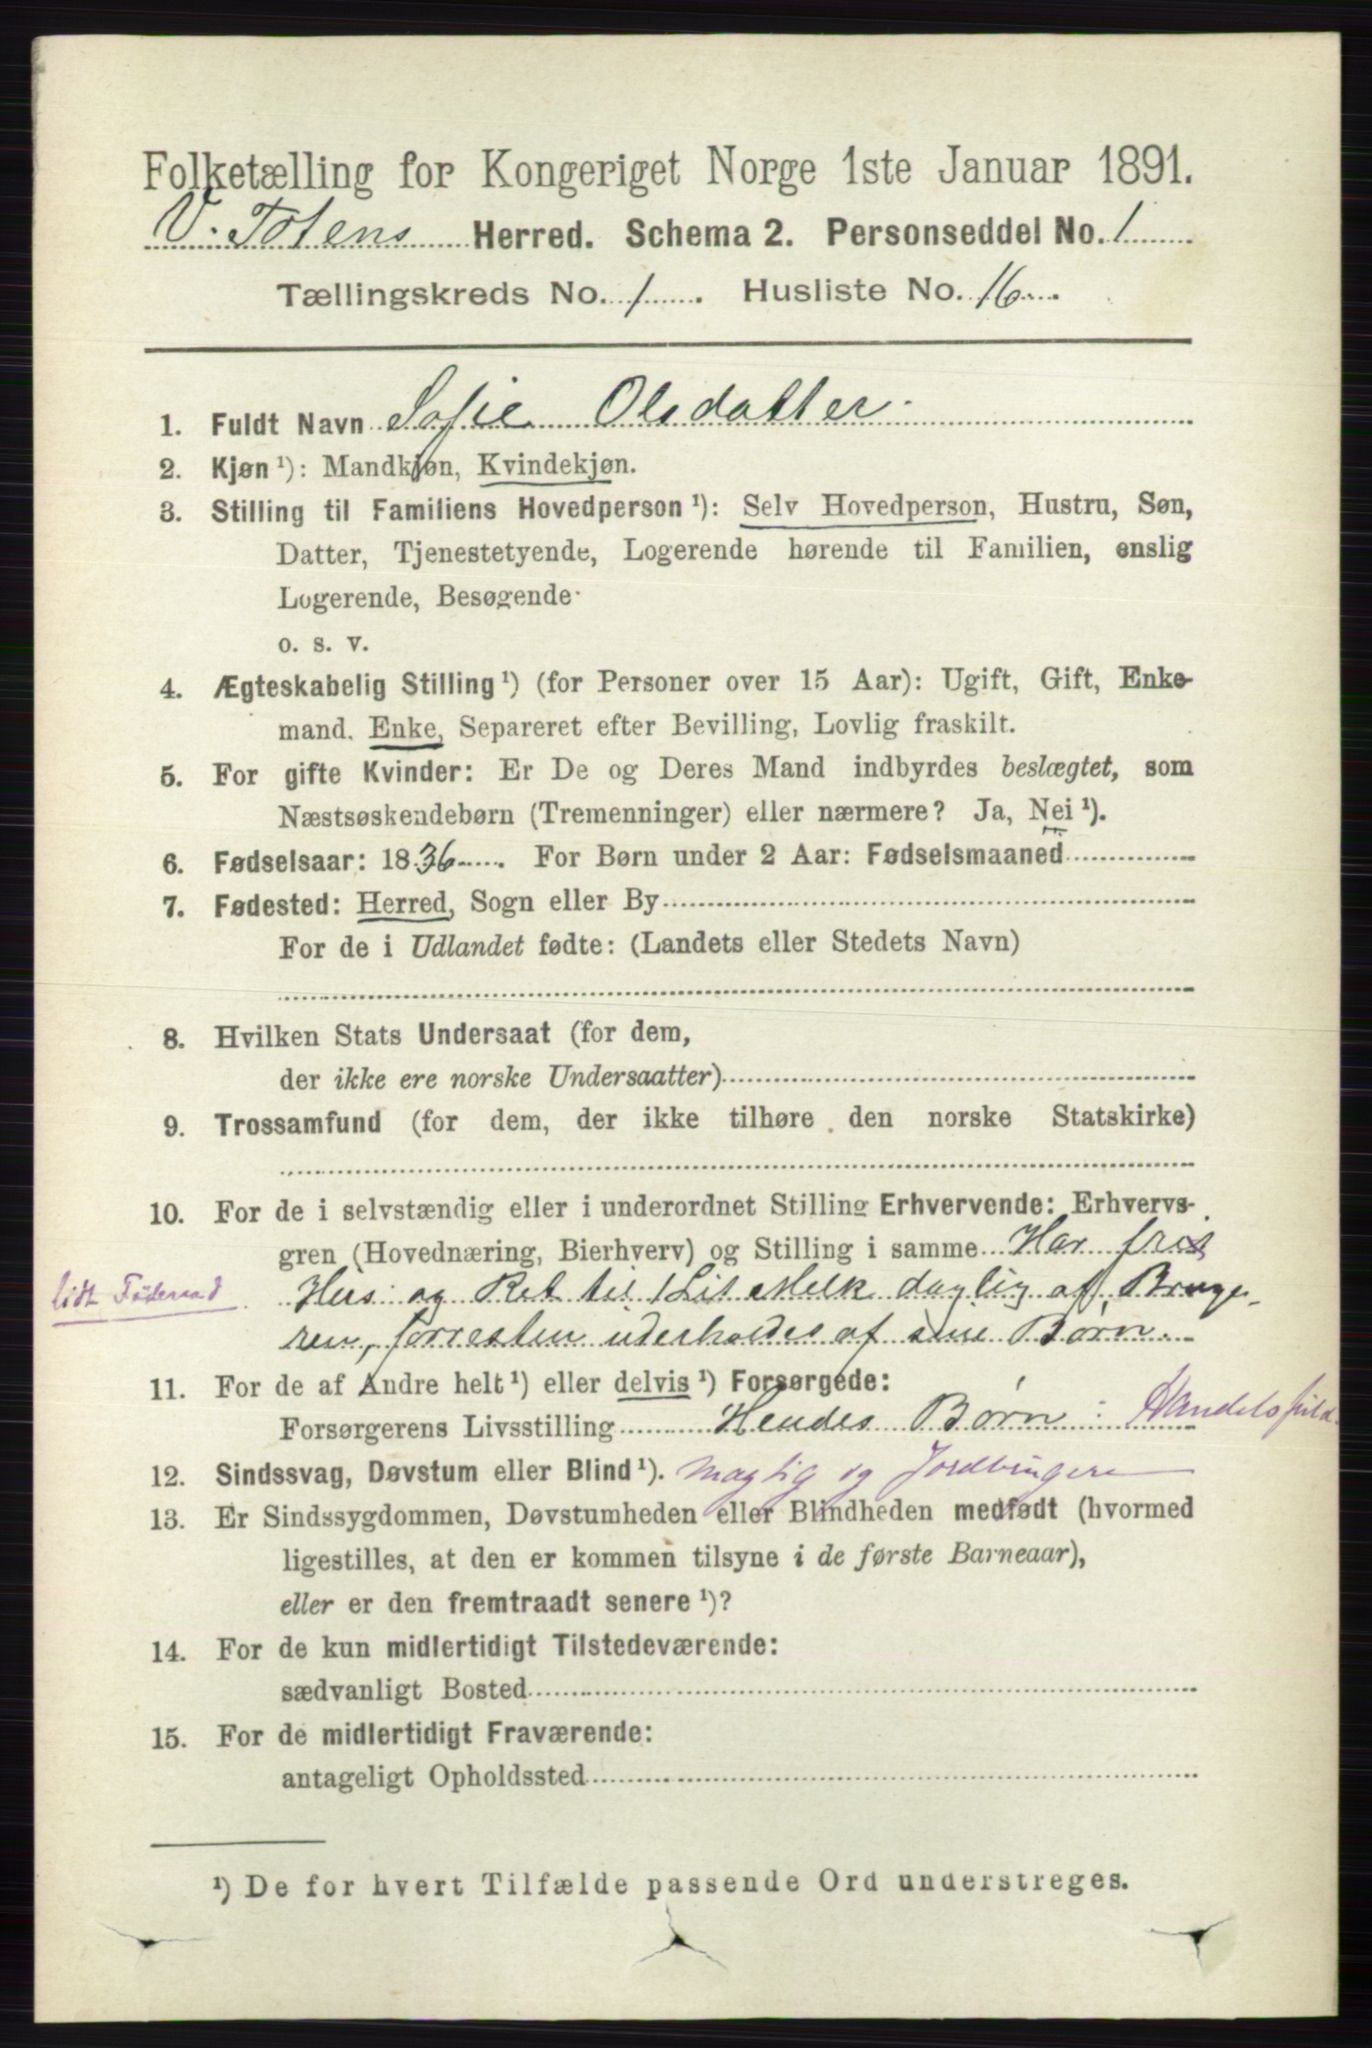 Folketælling for Kongeriget Norge 1ste Januar 1891.
V. Totens Herred. Schema 2. Personseddel No. 1
Tællingskreds No. 1. Husliste No. 16.
1. Fuldt Navn Sofie Olsdatter.
2. Kjøn ¹): Mandkjøn, Kvindekjøn.
3. Stilling til Familiens Hovedperson ¹): Selv Hovedperson, Hustru, Søn,
Datter, Tjenestetyende, Logerende hørende til Familien, enslig
Logerende, Besøgende
o. s. v.
4. Ægteskabelig Stilling ¹) (for Personer over 15 Aar): Ugift, Gift, Enke-
mand, Enke, Separeret efter Bevilling, Lovlig fraskilt.
5. For gifte Kvinder: Er De og Deres Mand indbyrdes beslægtet, som
Næstsøskendebørn (Tremenninger) eller nærmere? Ja, Nei ¹).
6. Fødselsaar: 1836. For Børn under 2 Aar: Fødselsmaaned
7. Fødested: Herred, Sogn eller By
For de i Udlandet fødte: (Landets eller Stedets Navn)
8. Hvilken Stats Undersaat (for dem,
der ikke ere norske Undersaatter)
9. Trossamfund (for dem, der ikke tilhøre den norske Statskirke)
10. For de i selvstændig eller i underordnet Stilling Erhvervende: Erhvervs-
gren (Hovednæring, Bierhverv) og Stilling i samme Har frit
lidt Føderaad Hus og Ret til 1 Lit Melk daglig af Bruge-
ren, forresten uderholdes af sine Børn.
11. For de af Andre helt ¹) eller delvis ¹) Forsørgede:
Forsørgerens Livsstilling Hendes Børn: Handelsfuld-
12. Sindssvag, Døvstum eller Blind ¹). mægtig og Jordbrugere
13. Er Sindssygdommen, Døvstumheden eller Blindheden medfødt (hvormed
ligestilles, at den er kommen tilsyne i de første Barneaar),
eller er den fremtraadt senere ¹)?
14. For de kun midlertidigt Tilstedeværende:
sædvanligt Bosted
15. For de midlertidigt Fraværende:
antageligt Opholdssted
¹) De for hvert Tilfælde passende Ord understreges.